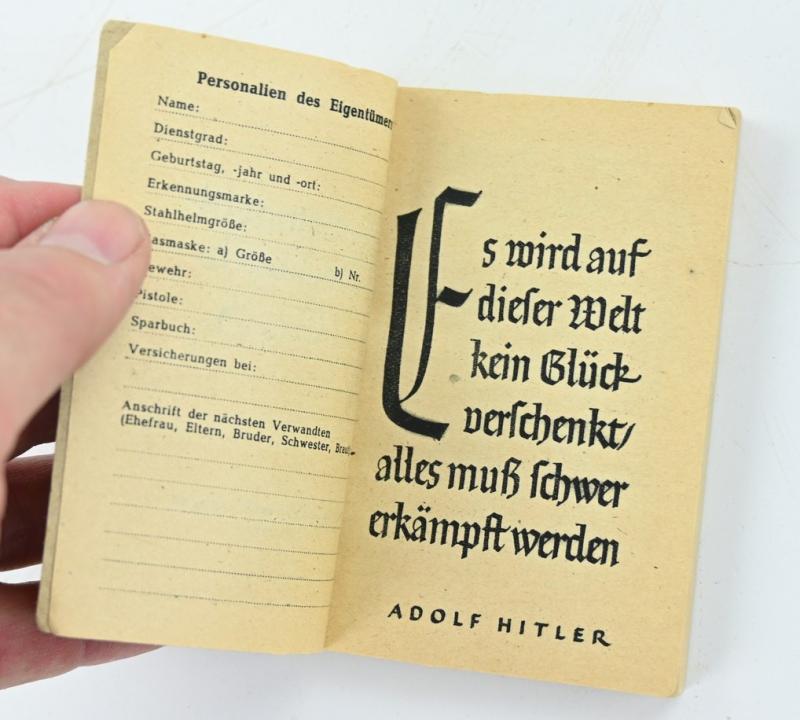 Personalien des Eigentümers
Name:
Dienstgrad:
Geburtstag, -jahr und -ort:
Erkennungsmarke:
Stahlhelmgröße:
asmaske: a) Größe b) Nr.
ewehr:
Pistole:
Sparbuch:
Versicherungen bei:
Anschrift der nächsten Verwandten
(Ehefrau, Eltern, Bruder, Schwester, Braut
Es wird auf
dieser Welt
kein Glück
verschenkt/
alles muß schwer
erkämpft werden
ADOLF HITLER